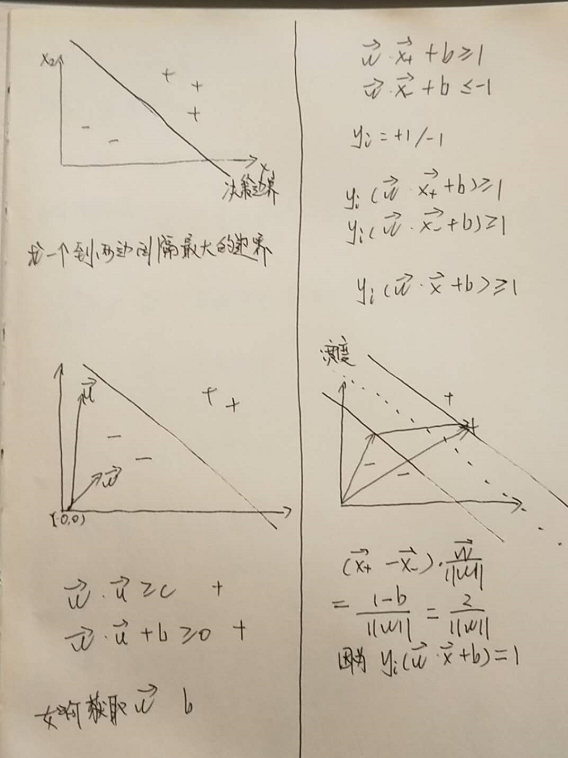 x₂
+ +
+
- -
x₁
决策边界
找一个到两边间隔最大的边界
u⃗
+ +
-
-
w⃗
(0,0)
w⃗ · u⃗ ≥ c +
w⃗ · u⃗ + b ≥ 0 +
如何获取 w⃗ b
w⃗ · x⃗₊ + b ≥ 1
w⃗ · x⃗₋ + b ≤ -1
yᵢ = +1/-1
yᵢ(w⃗ · x⃗₊ + b) ≥ 1
yᵢ(w⃗ · x⃗₋ + b) ≥ 1
yᵢ(w⃗ · x⃗ + b) ≥ 1
宽度
+
+
- -
(x⃗₊ - x⃗₋) · w⃗/||w||
= 1-b/||w|| = 2/||w||
因为 yᵢ(w⃗ · x⃗ + b) = 1